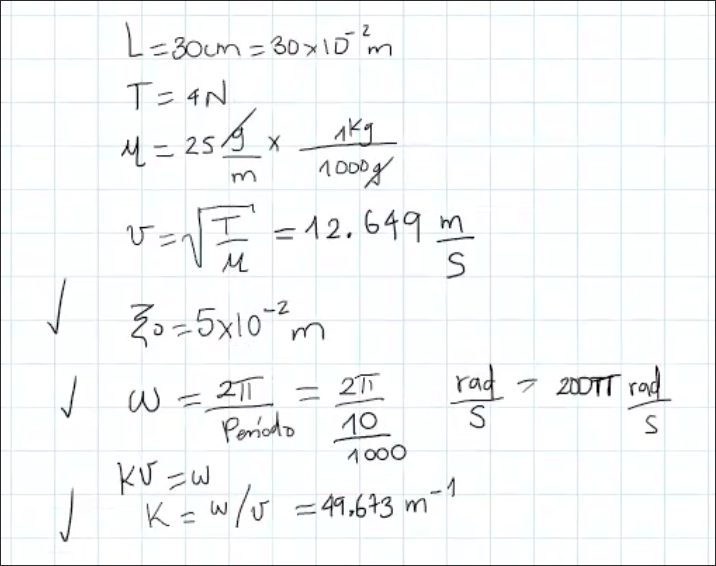 L = 30cm = 30×10⁻² m
T = 4N
μ = 25 g/m × 1Kg/1000g
v = √(T/μ) = 12.649 m/s
✓ ξ₀ = 5×10⁻² m
✓ ω = 2π/Período = 2π/(10/1000) rad/s = 200π rad/s
Kv = ω
✓ K = ω/v = 49.673 m⁻¹